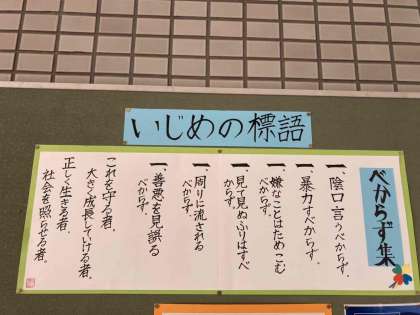 いじめの標語
べからず集
一、陰口言うべからず。
一、暴力すべからず。
一、嫌なことはためこむ
べからず。
一、見て見ぬふりはすべ
からず。
一、周りに流される
べからず。
一、善悪を見誤る
べからず。
これを守る者、
大きく成長していける者。
正しく生きる者、
社会を照らせる者。